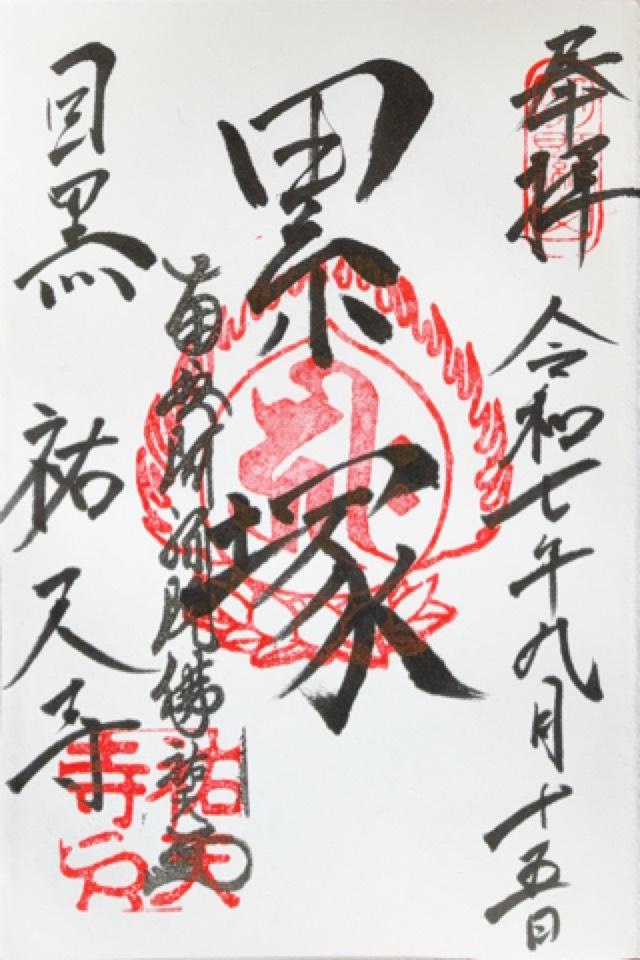 奉拝
令和七年九月十五日
累塚
南無阿弥陀佛
目黒 祐天寺
祐天
寺